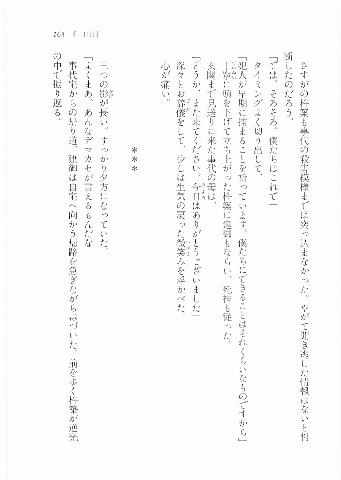 163　『二日目』
さすがの杵築も事代の殺害模様までは突っ込まなかった。やがて聞き逃した情報はないと判
断したのだろう、
「では、そろそろ。僕たちはこれで」
タイミングよく切り出して、
「犯人が早期に捕まることを祈っています。僕たちにできることはそれくらいなものですから」
丁寧に頭を下げて立ち上がった杵築に建御もならい、死神も従った。
玄関まで見送りに来た事代の母は、
「どうか、また来てください。今日はありがとうございました」
深々とお辞儀をして、少しは生気の戻った微笑みを浮かべた。
心が痛い。
＊＊＊
三つの影が長い。すっかり夕方になっていた。
「よくまあ、あんなデマカセが言えるもんだな」
事代宅からの帰り道、建御は自宅へ向かう帰路を急ぎながら毒づいた。前を歩く杵築が逆光
の中で振り返る。